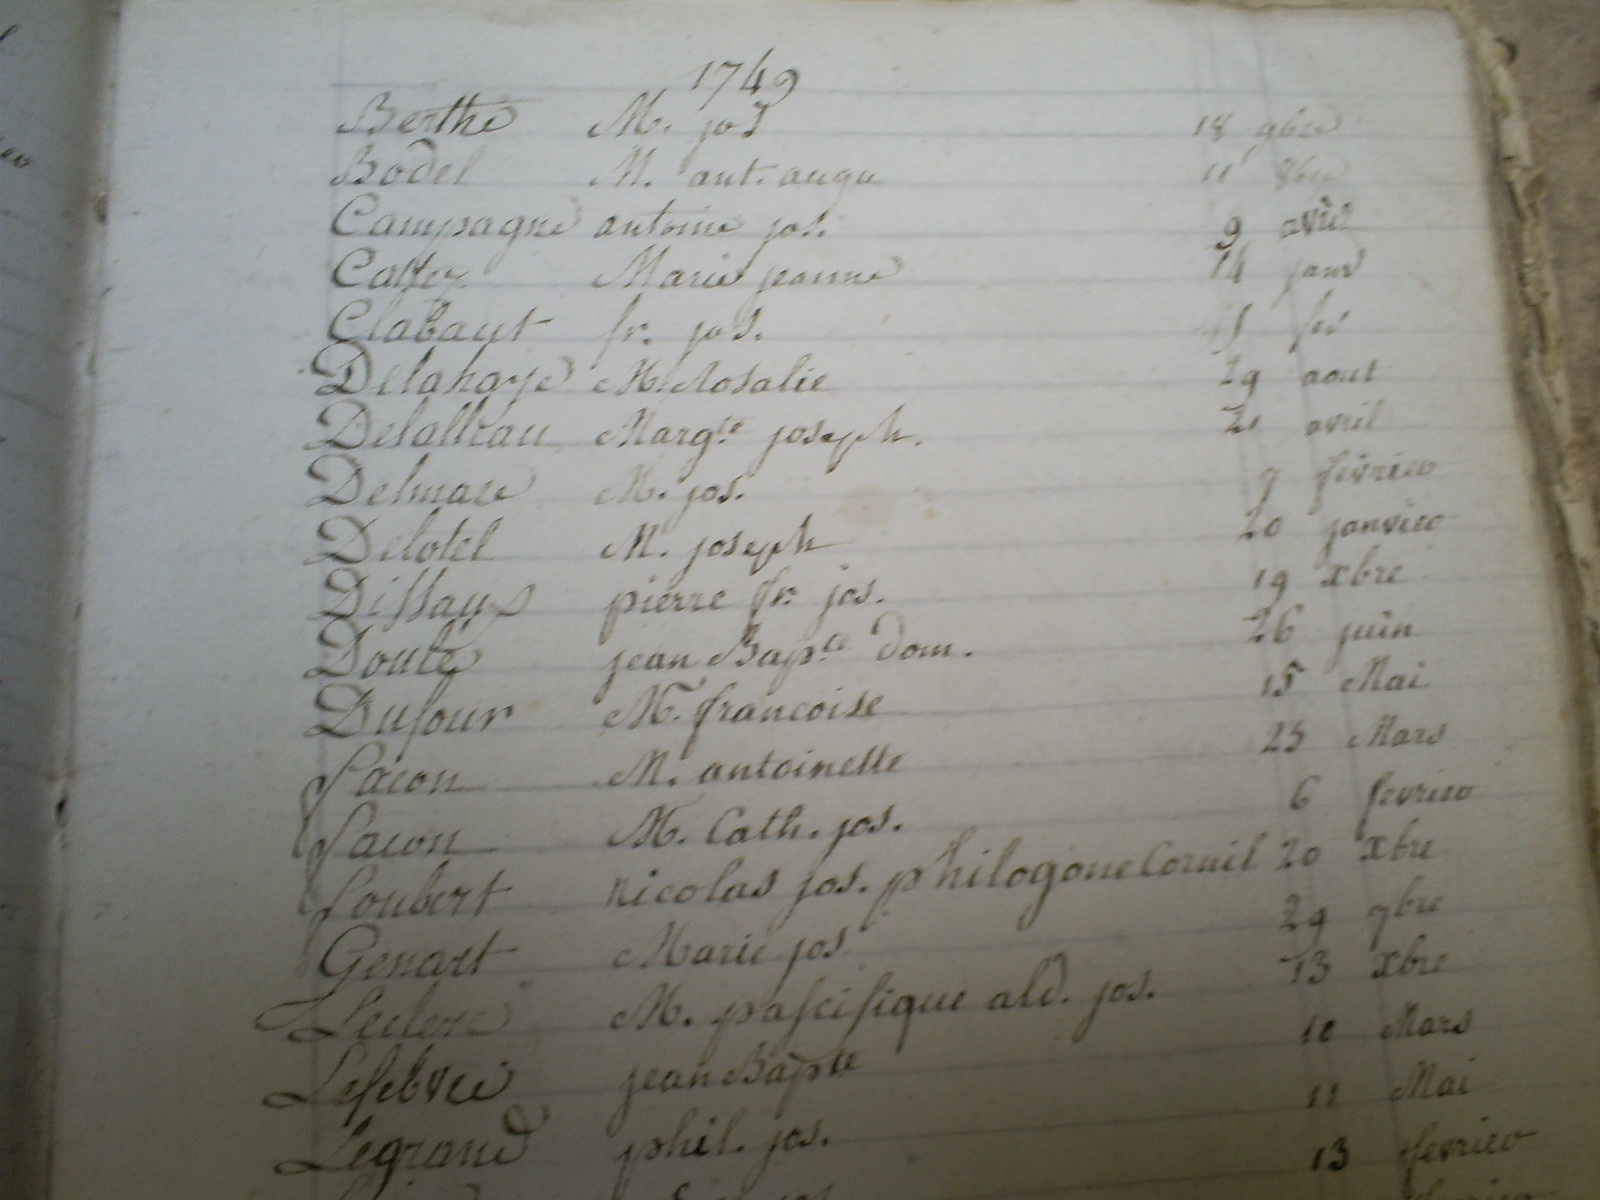 1749
Berthe M. jos 18 9bre
Bodel M. ant. augu 11 8bre
Campagne antoine jos. 9 avril
Cattez Marie jeanne 14 janv
Clabaut fr. jos. 5 fev
Delahaye M. Rosalie 29 aout
Delalleau Margte joseph. 21 avril
Delmare M. jos. 9 fevrier
Delotel M. joseph 20 janvier
Dissaus pierre fr. jos. 19 xbre
Doute jean Bapte dom. 26 juin
Dufour M. francoise 15 Mai
facon M. antoinette 25 Mars
facon M. Cath. jos. 6 fevrier
foubert Nicolas jos. philogone Cornil 20 xbre
Genart Marie jos. 29 7bre
Leclerc M. pascifique ald. jos. 13 xbre
Lefebvre jean Bapte 10 Mars
Legrand phil. jos. 11 Mai
13 fevrier